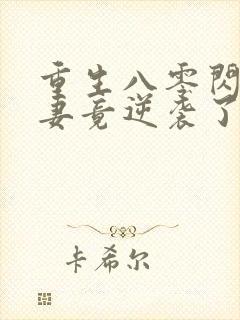 重生八零閃
妻竟逆袭了
卡希尔